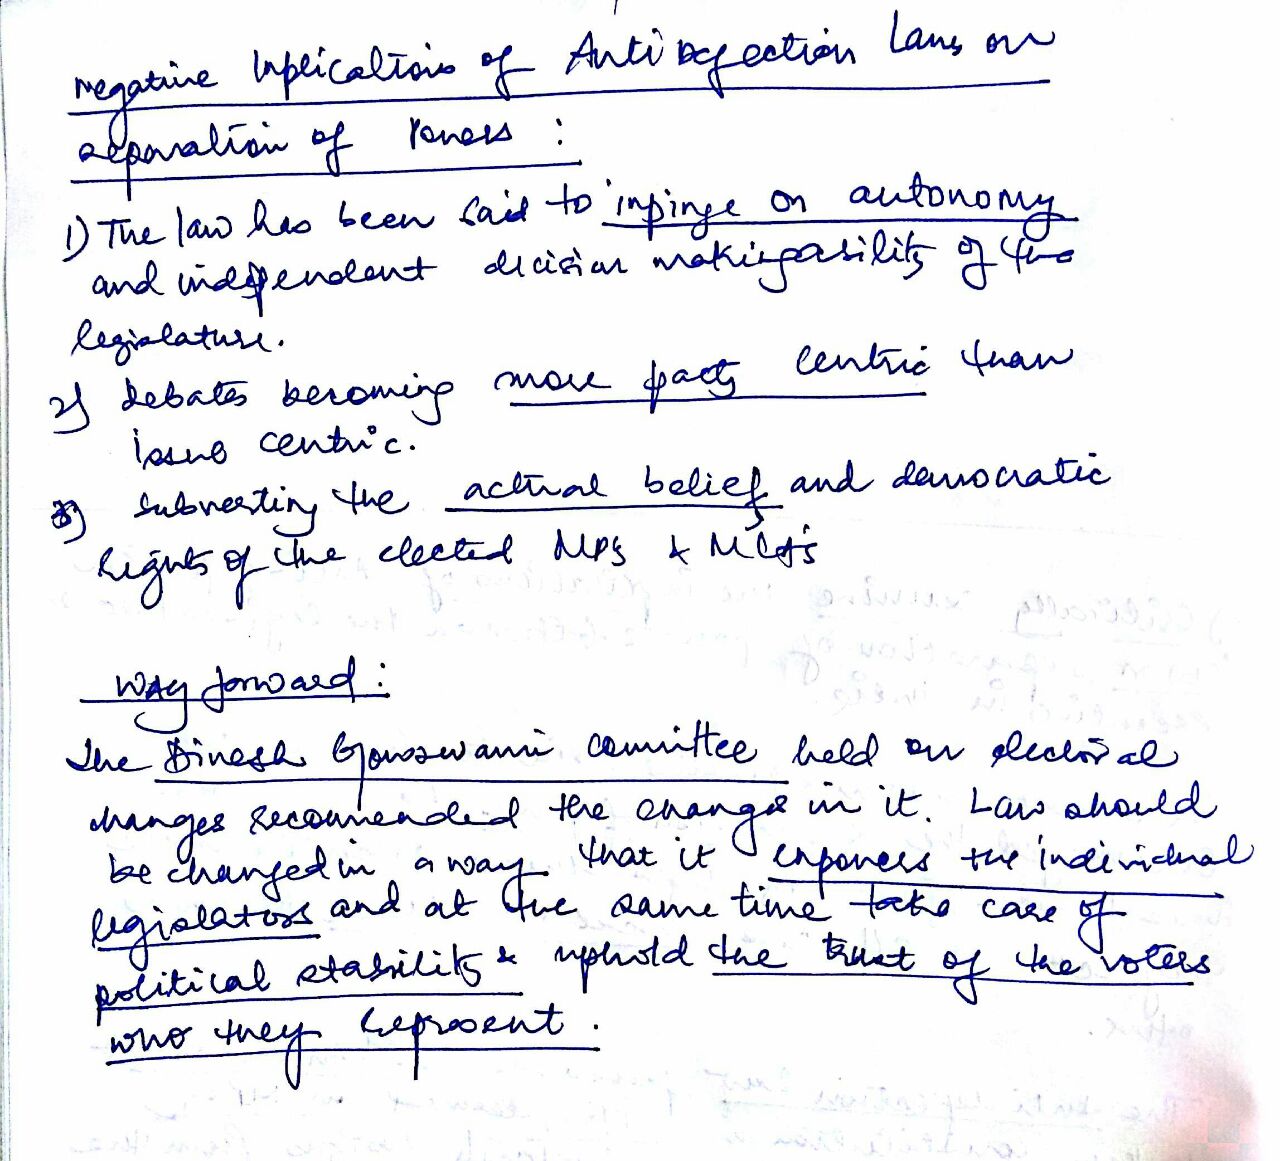 Negative Implications of Anti Defection Laws on
separation of Powers :
1) The law has been said to impinge on autonomy
and independent decision making ability of the
legislature.
2) Debates becoming more party centric than
issue centric.
3) Subverting the actual belief and democratic
Rights of the elected MPs & MLA's
Way forward :
The Dinesh Gowswami committee held on electoral
changes recommended the changes in it. Law should
be changed in a way that it empowers the individual
legislators and at the same time take care of
political stability & uphold the trust of the voters
who they represent.